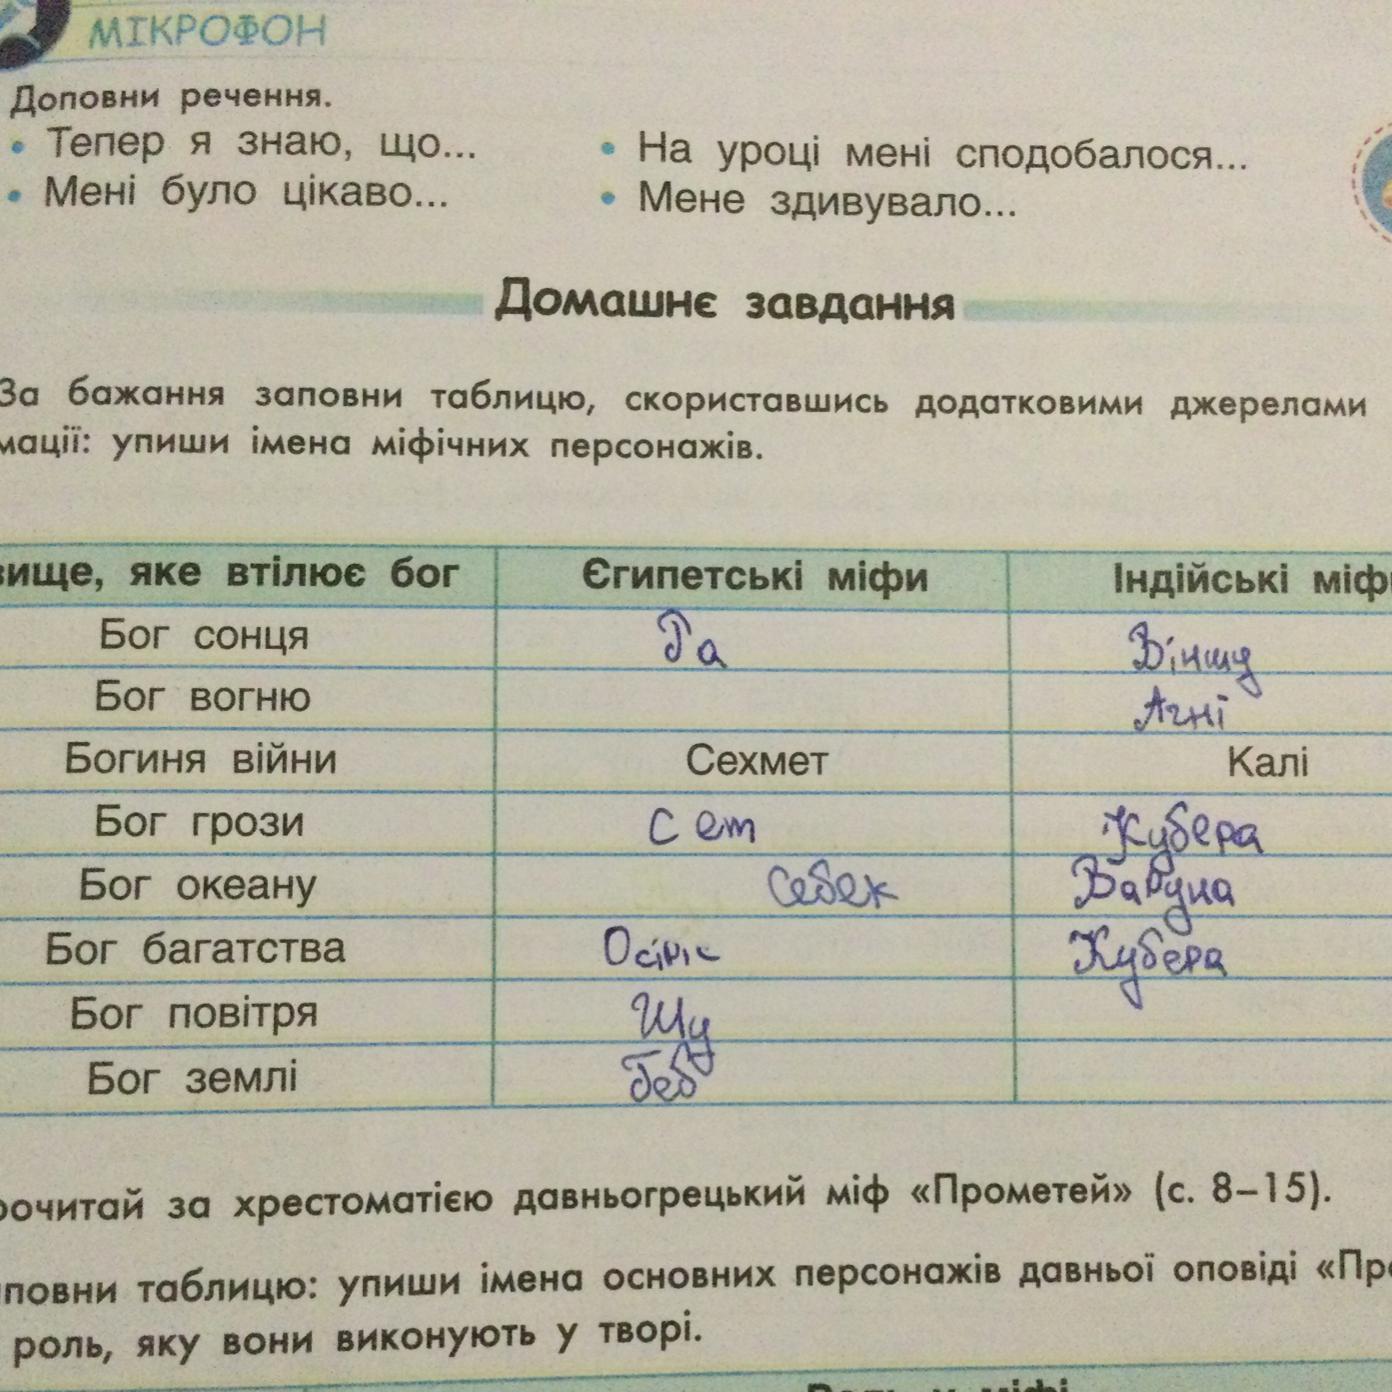 МІКРОФОН
Доповни речення.
• Тепер я знаю, що... • На уроці мені сподобалося...
• Мені було цікаво... • Мене здивувало...
Домашнє завдання
За бажання заповни таблицю, скориставшись додатковими джерелами
мації: упиши імена міфічних персонажів.
вище, яке втілює бог Єгипетські міфи Індійські міфи
Бог сонця Ра Віншу
Бог вогню Агні
Богиня війни Сехмет Калі
Бог грози Сет Кубера
Бог океану Себек Варуна
Бог багатства Осіріс Кубера
Бог повітря Шу
Бог землі Геб
рочитай за хрестоматією давньогрецький міф «Прометей» (с. 8–15).
повни таблицю: упиши імена основних персонажів давньої оповіді «Про
роль, яку вони виконують у творі.
Роль у міфі